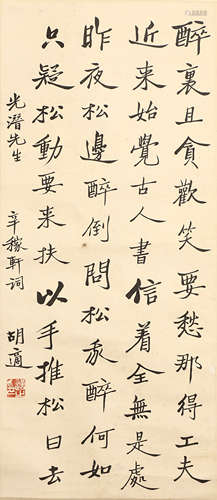 醉裏且貪歡笑要愁那得工夫
近来始覺古人書信着全無是處
昨夜松邊醉倒問松我醉何如
只疑松動要来扶以手推松曰去
光潛先生 辛稼軒詞 胡適